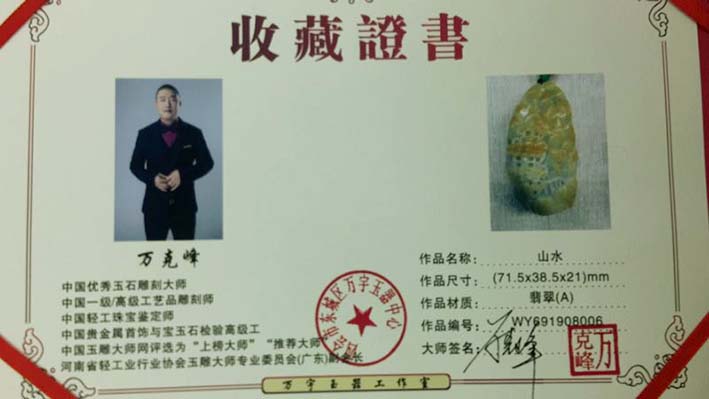 收藏證書
万克峰
中国优秀玉石雕刻大师
中国一级/高级工艺品雕刻师
中国轻工珠宝鉴定师
中国贵金属首饰与宝玉石检验高级工
中国玉雕大师网评选为“上榜大师”“推荐大师”
河南省轻工业行业协会玉雕大师专业委员会(广东)副会长
作品名称: 山水
作品尺寸: (71.5x38.5x21)mm
作品材质: 翡翠(A)
作品编号: WY691908006
大师签名:
万克峰
会市东城区万宇玉器中心
万宇玉器工作室